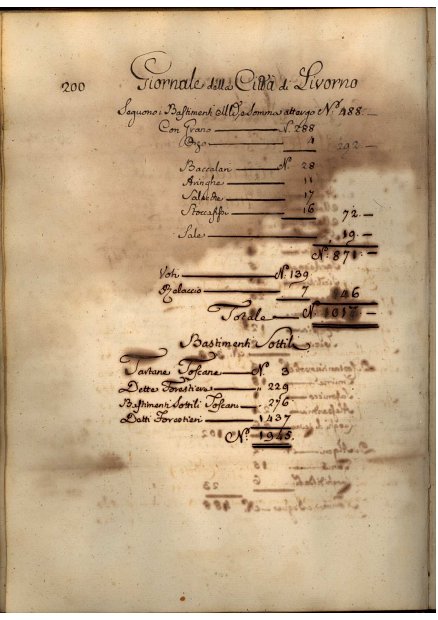 200 Giornale della Città di Livorno
Seguono i Bastimenti e Somma attergo N.º 488.—
Con Grano — N. 288
Orzo — 4 292.—
Baccalari — N. 28
Aringhe — 11
Salacche — 17
Stoccaffisi — 16 72.—
Sale — 19.—
N.º 871.—
Voti — N.º 139
Rilaccio — 7 146
Totale — N.º 1017.—
Bastimenti Sottili
Tartane Toscane — N. 3
Dette Forestiere — 229
Bastimenti Sottili Toscani — 276
Detti Forestieri — 1437
N.º 1945